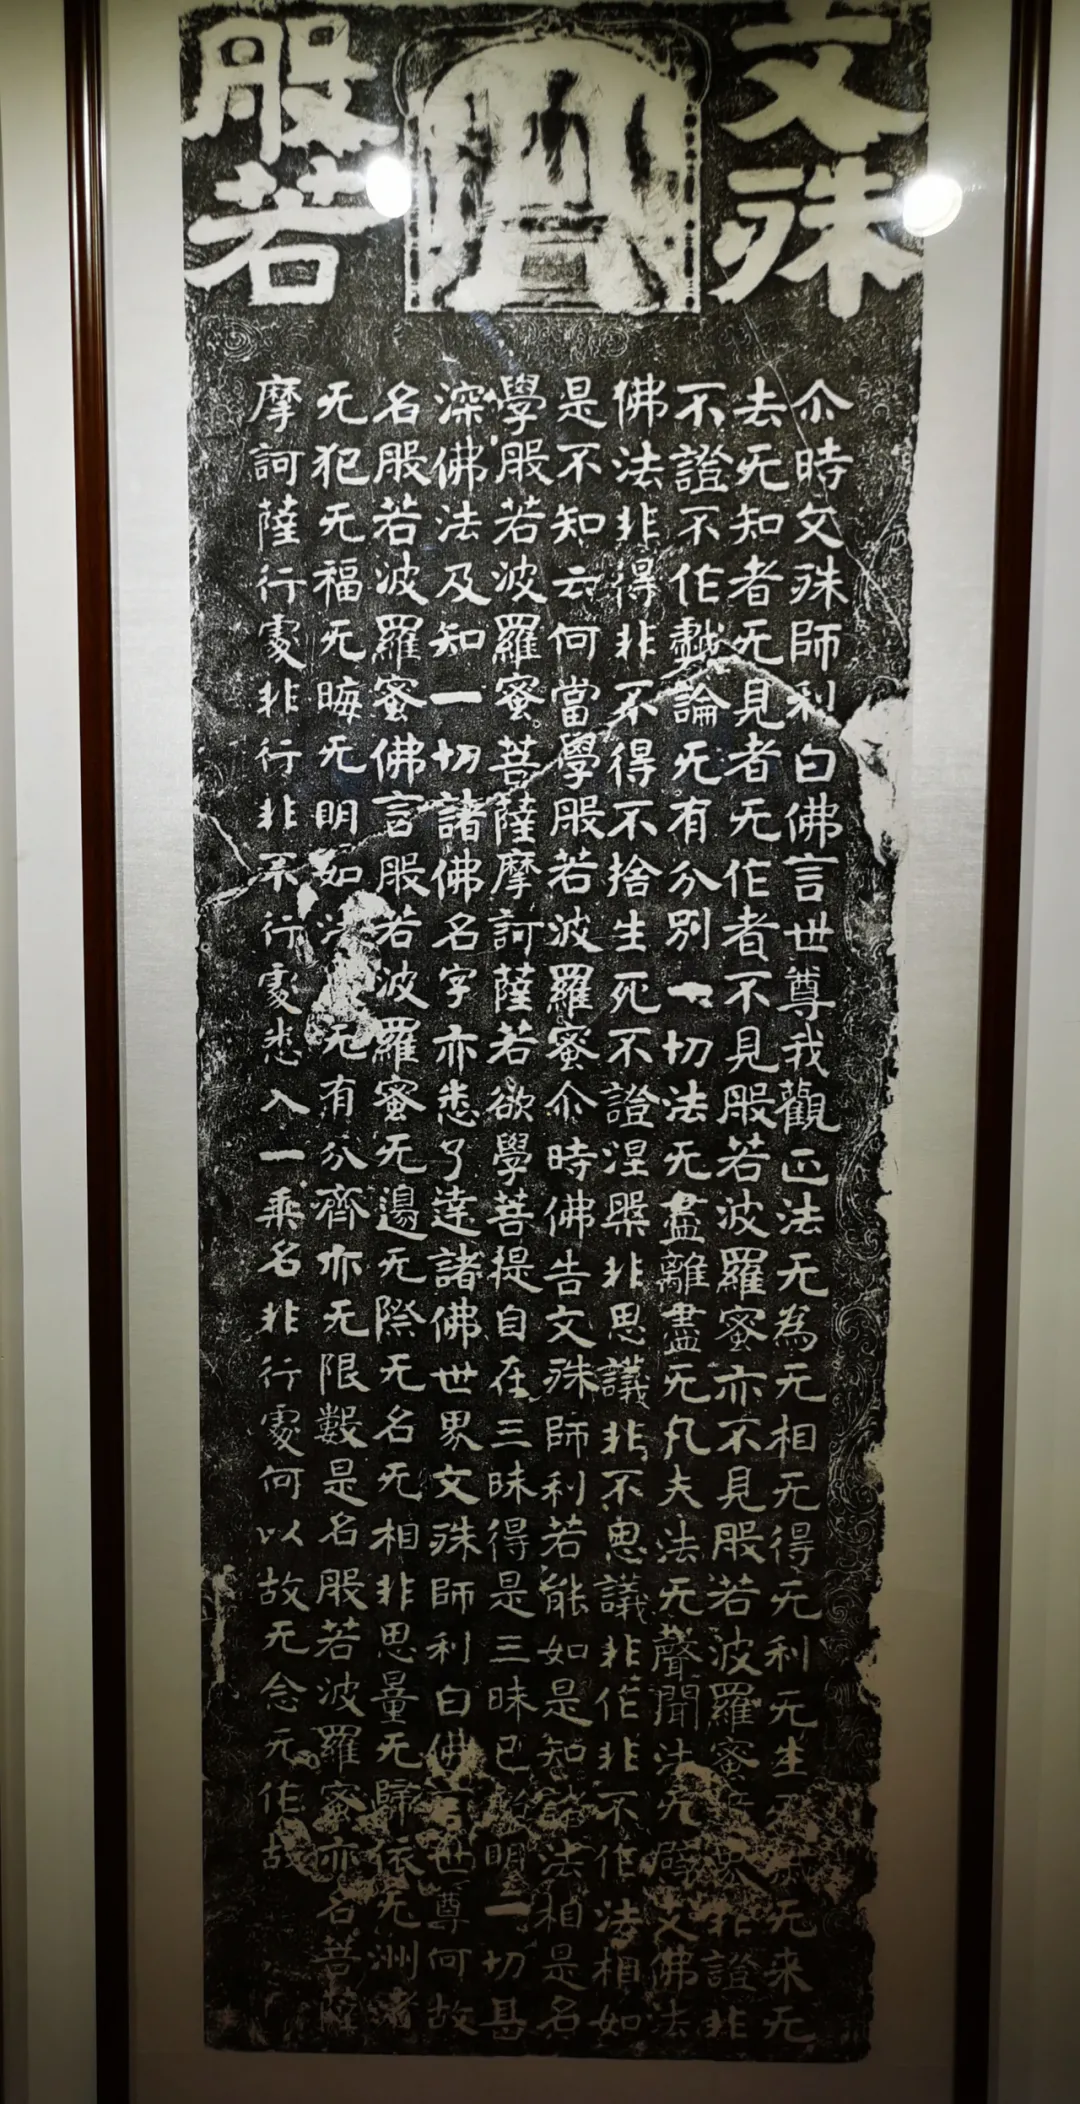 文殊
般若
尒時文殊師利白佛言世尊我觀正法无為无相无得无利无生无滅无来无
去无知者无見者无作者不見般若波羅蜜亦不見般若波羅蜜境界非證非
不證不作戲論无有分别一切法无盡離盡无凡夫法无聲聞法无辟支佛法
佛法非得非不得不捨生死不證涅槃非思議非不思議非作非不作法相如
是不知云何當學般若波羅蜜尒時佛告文殊師利若能如是知諸法相是名
學般若波羅蜜菩薩摩訶薩若欲學菩提自在三昧得是三昧已照明一切甚
深佛法及知一切諸佛名字亦悉了達諸佛世界文殊師利白佛言世尊何故
名般若波羅蜜佛言般若波羅蜜无邊无際无名无相非思量无歸依无洲渚
无犯无福无晦无明如法无有分齊亦无限數是名般若波羅蜜亦名菩薩
摩訶薩行處非行非不行處悉入一乘名非行處何以故无念无作故